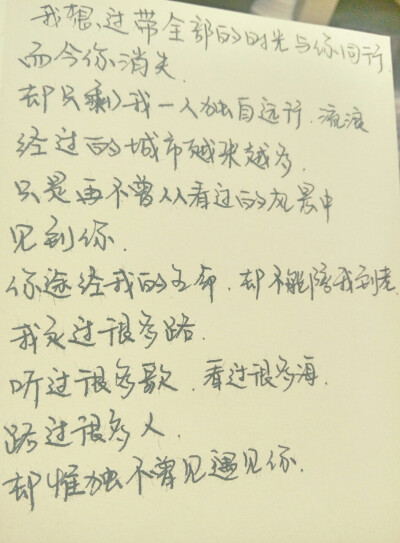 我想过带全部的时光与你同行.
而今你消失.
却只剩我一人独自远行.流浪
经过的城市越来越多.
只是再不曾从看过的风景中
见到你.
你途经我的生命.却不能陪我到老.
我走过很多路.
听过很多歌.看过很多海.
路过很多人.
却惟独不曾见遇见你.